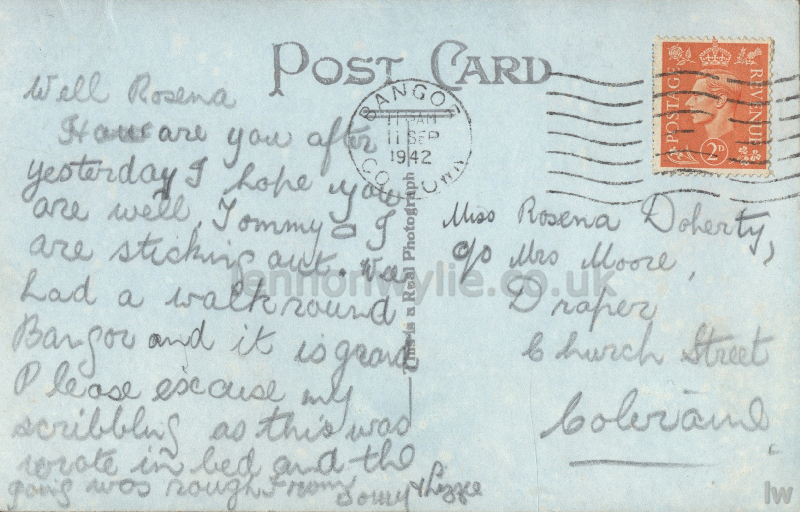 POST CARD
Well Rosena
How are you after
yesterday I hope you
are well, Tommy & I
are sticking out. We
had a walk round
Bangor and it is grand
Please excuse my
scribbling as this was
wrote in bed and the
going was rough From
Tommy & Lizzie
BANGOR
11 SEP
1942
CO. DOWN
This is a Real Photograph
POSTAGE
REVENUE
2D
Miss Rosena Doherty,
c/o Mrs Moore,
Draper
Church Street
Coleraine
lennonwylie.co.uk
lw